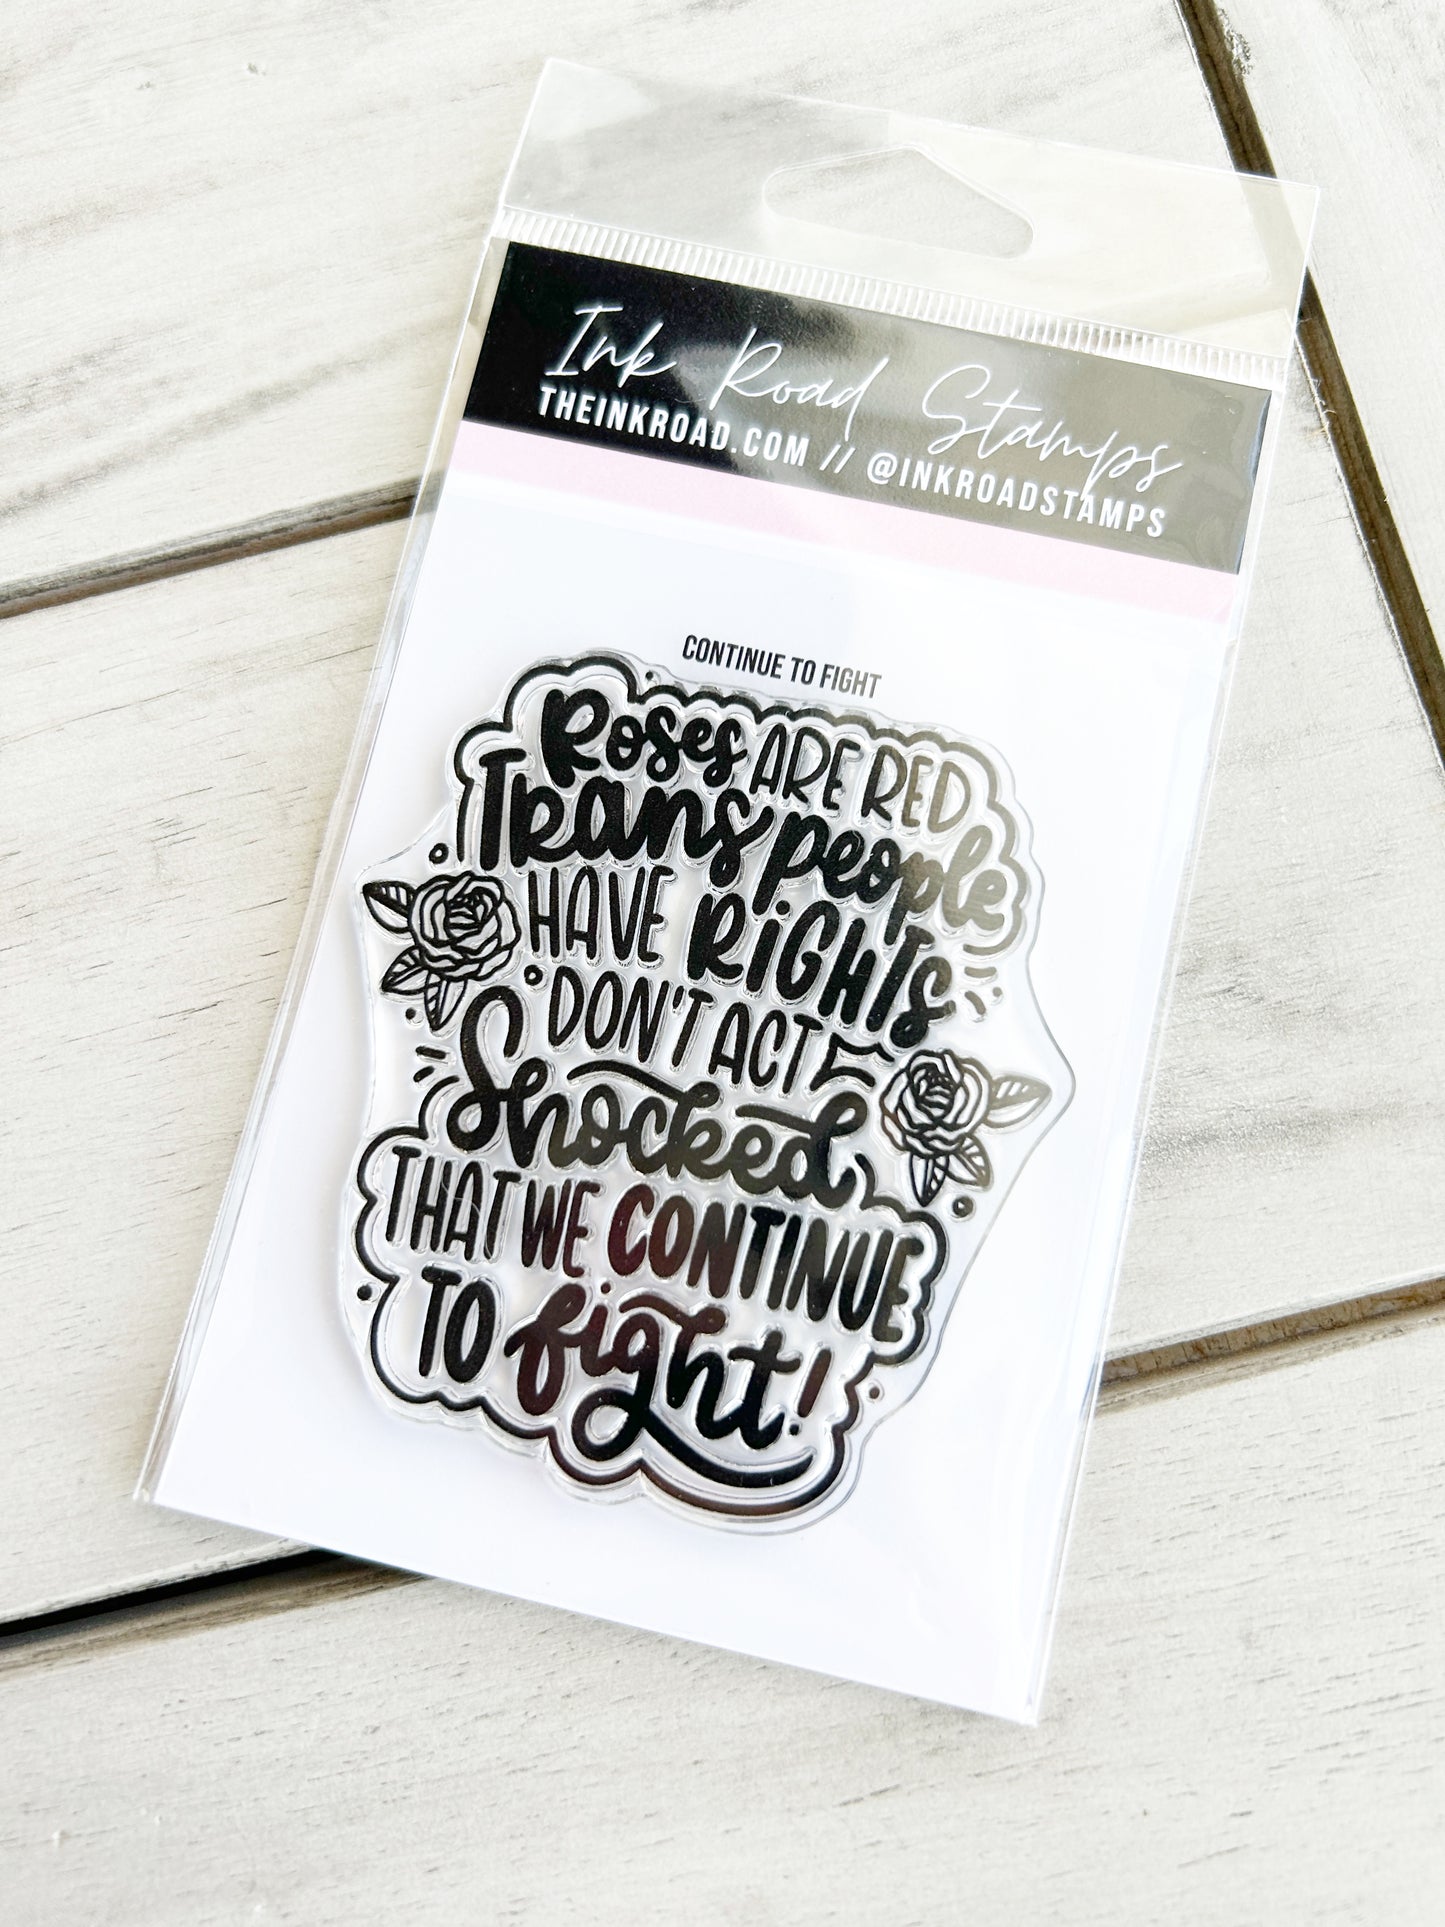 Ink Road Stamps
THEINKROAD.COM // @INKROADSTAMPS
CONTINUE TO FIGHT
Roses ARE RED
Trans people
HAVE RiGHTS
DON'T ACT
Shocked
THAT WE CONTINUE
TO fight!